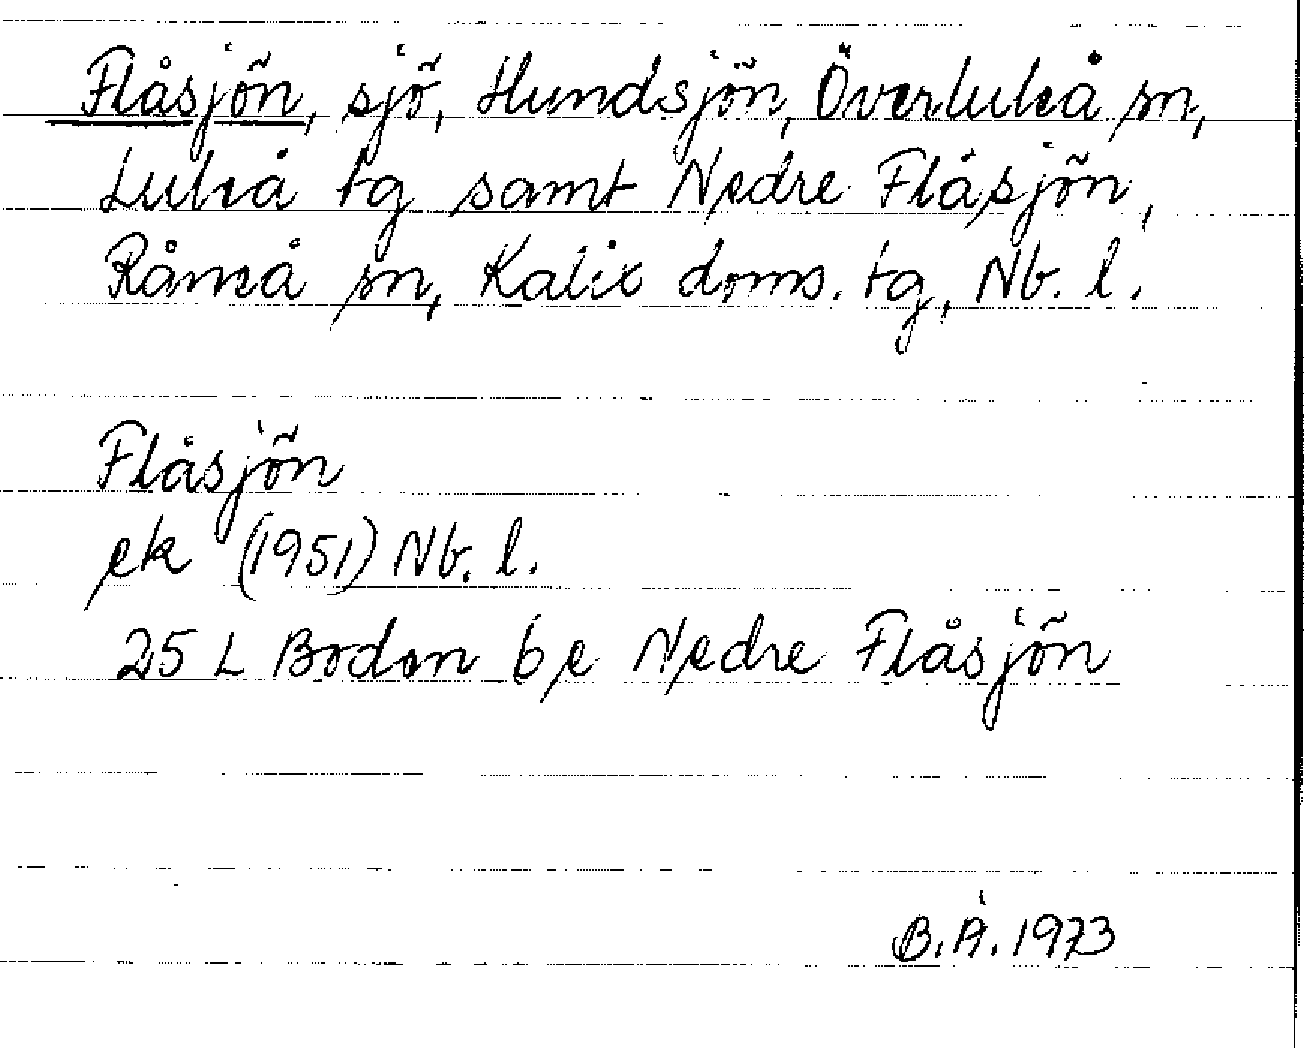 Flåsjön, sjö, Hundsjön, Överluleå sn,
Luleå tg samt Nedre Flåsjön,
Råneå sn, Kalix doms. tg, Nb. l.
Flåsjön
ek (1951) Nb. l.
25 L Boden be Nedre Flåsjön
B.Å. 1973